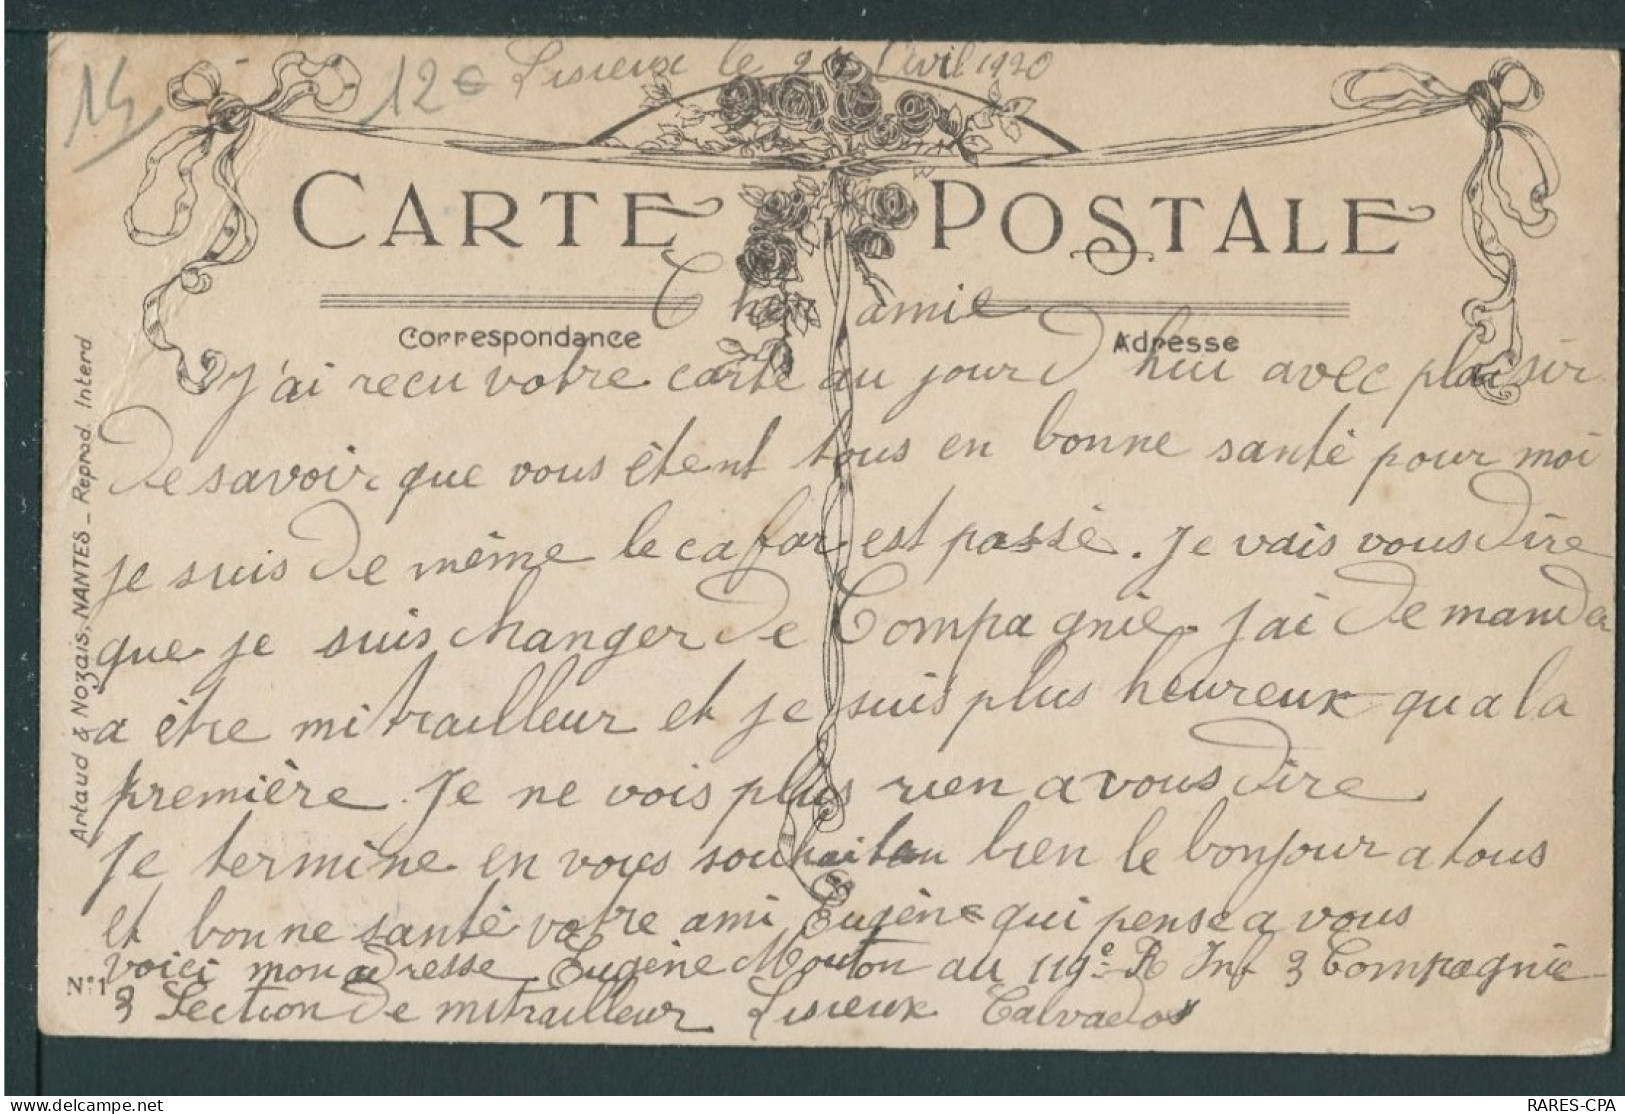 14
12€ Lisieux le Avril 1920
CARTE POSTALE
Cher amie
Correspondance
Adresse
J'ai recu votre carte au jour D hui avec plaisir
De savoir que vous étent tous en bonne santé pour moi
je suis De même le cafar est passé. Je vais vous Dire
que je suis changer De Compagnie J'ai De mander
a être mitrailleur et je suis plus heureux qu a la
première. Je ne vois plus rien a vous Dire
Je termine en vous souhaitan bien le bonjour a tous
et bonne santé votre ami Eugène qui pense a vous
voici mon adresse Eugène Mouton au 119e R Inf 3 Compagnie
3 Section De mitrailleur Lisieux Calvados
Artaud & Nozais. NANTES _ Reprod. Interd
N° 1
RARES-CPA